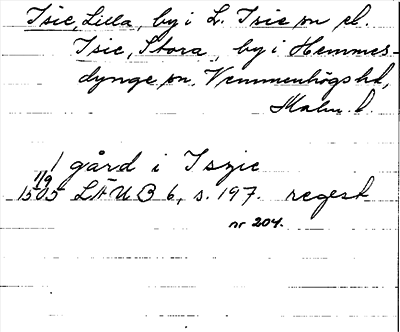 Isie, Lilla, by i L. Isie sn el.
Isie, Stora, by i Hemmes-
dynge sn, Vemmenhögs hd,
Malm. l.
1 gård i Iszie
11/9
1505 LÄUB 6, s. 197. regest
nr 204.